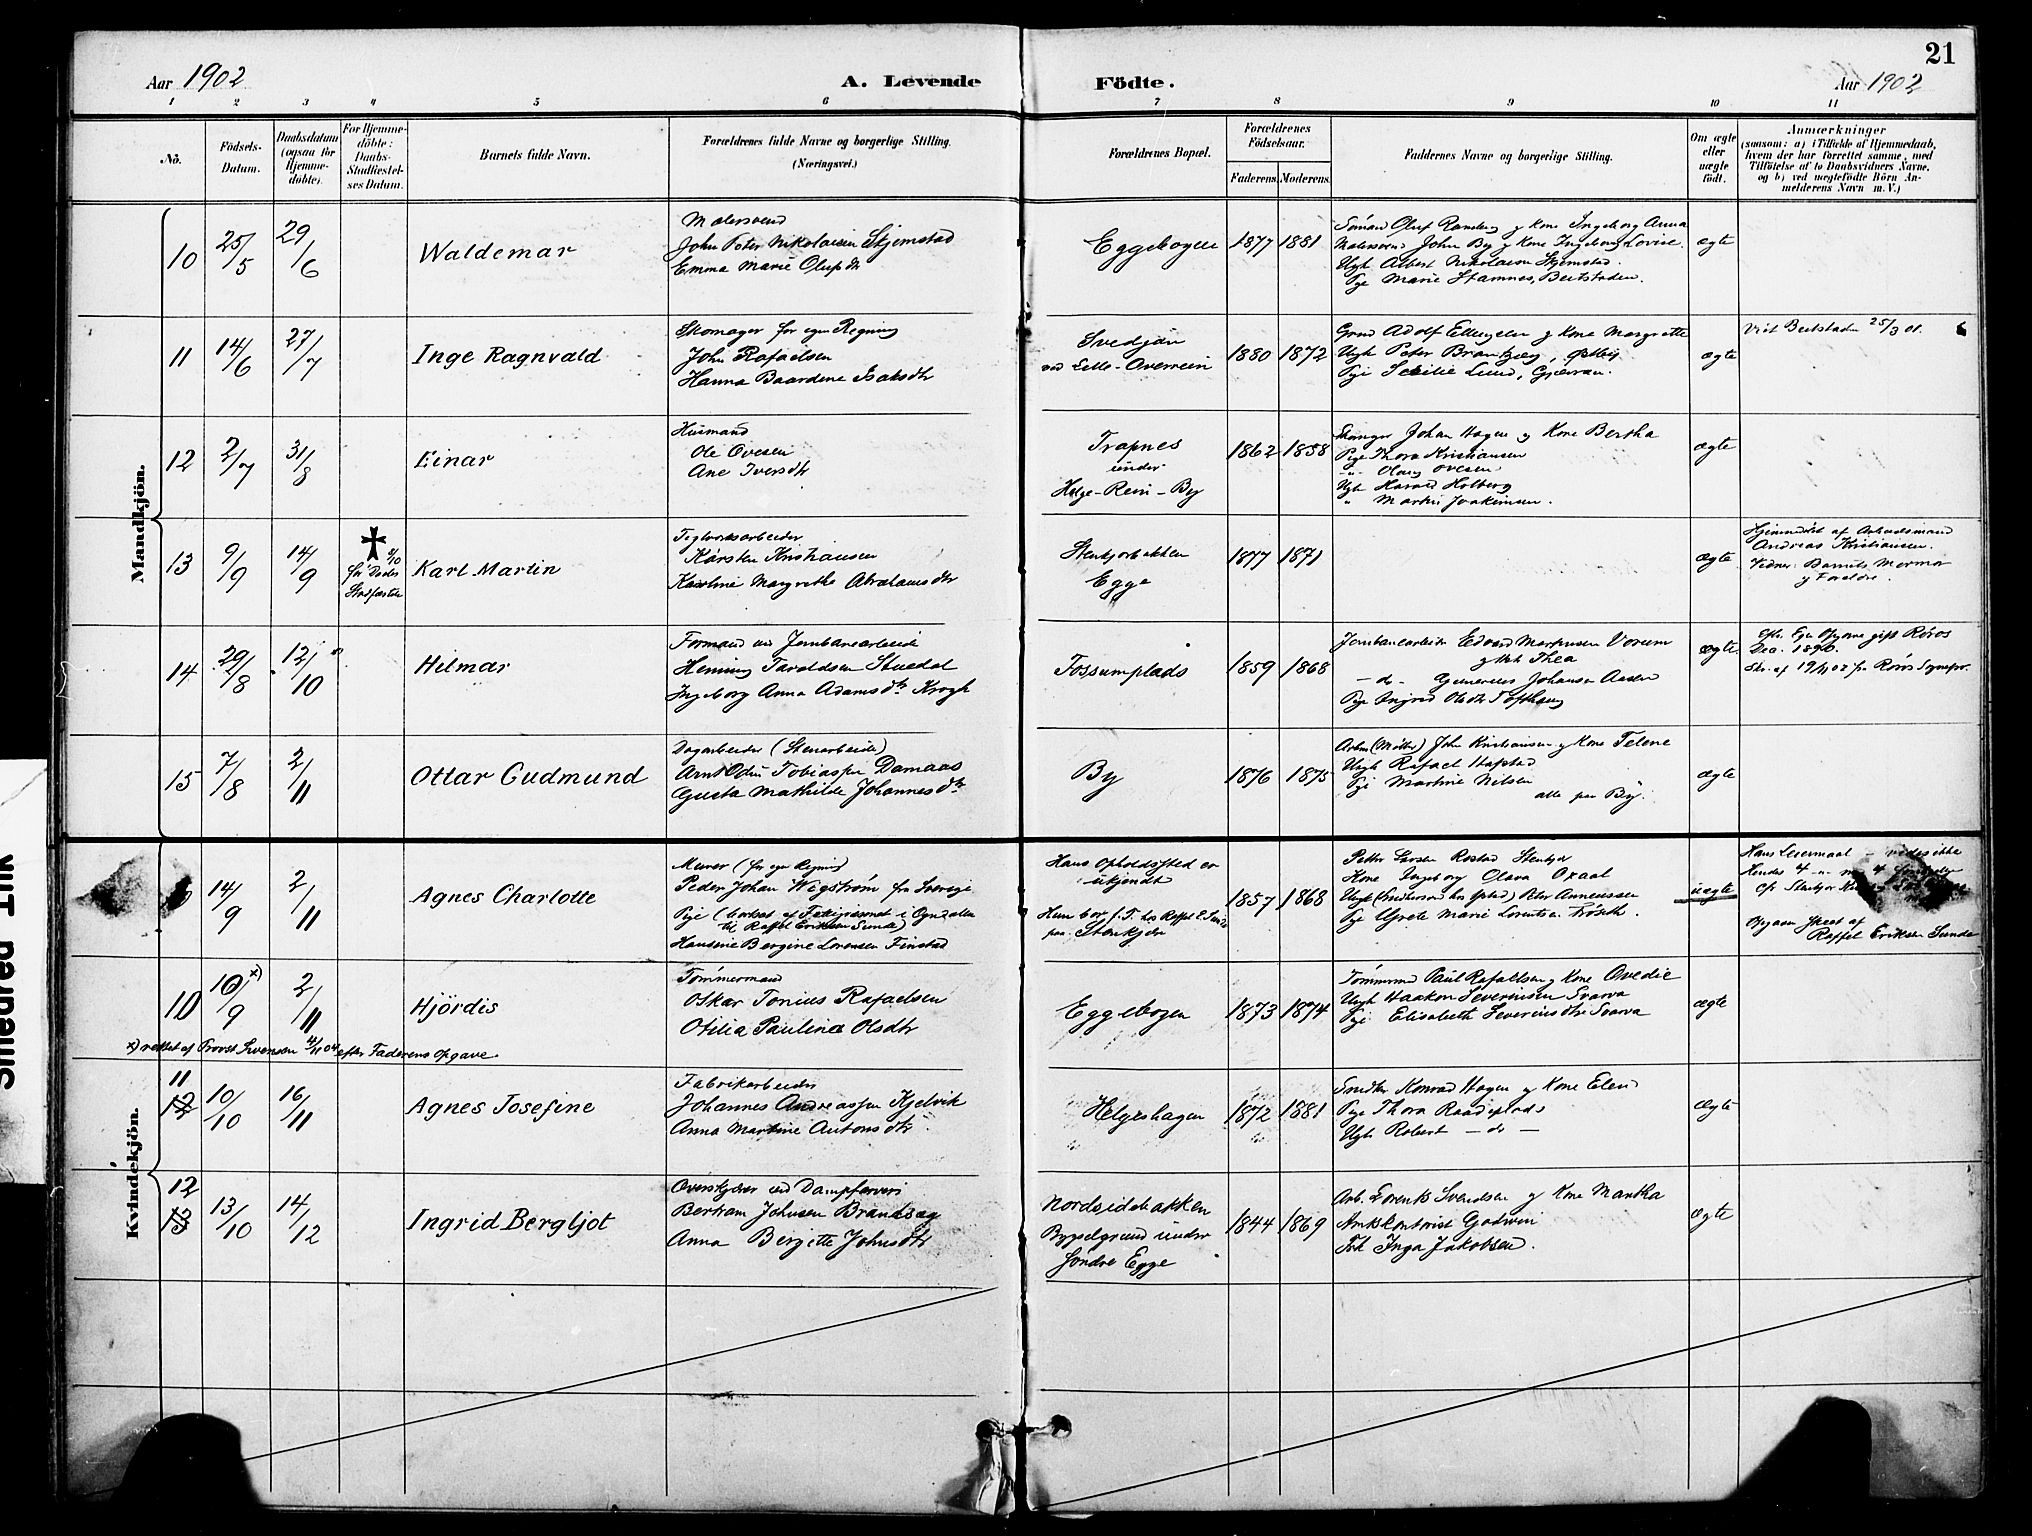 21
Aar 1902
A. Levende
Födte.
Aar 1902
1 2 3 4 5 6 7 8 9 10 11
No.
Födsels-
Datum.
Daabsdatum
(ogsaa for
Hjemme-
döbte).
For Hjemme-
döbte:
Daabs-
Stadfæstel-
ses Datum.
Barnets fulde Navn.
Forældrenes fulde Navne og borgerlige Stilling.
(Næringsvei.)
Forældrenes Bopæl.
Forældrenes
Födselsaar.
Faderens. Moderens.
Faddernes Navne og borgerlige Stilling.
Om ægte
eller
uægte
födt.
Anmærkninger
(saasom: a) i Tilfælde af Hjemmedaab,
hvem der har forrettet samme, med
Tilföielse af to Daabsvidners Navne,
og b) ved uægtefödte Börn An-
melderens Navn m. V.)
Mandkjön.
10 25/5 29/6 Waldemar
Malersvend
John Peter Nikolaisen Skjemstad
Emma Marie Olufsdtr
Eggebogen
1877 1881
Oluf Ramberg og Kone Ingeborg Anna
Malersvend John By og Kone Ingeborg Lovise.
Ungk Albert Nikolaisen Skjemstad.
Pige Marie Stamnes, Beitstaden.
ægte
11 14/6 27/7 Inge Ragnvald
Skomager for egen Regning
John Rafaelsen
Hanna Baardine Isaksdtr
Svedjan
ved Lille-Overrein
1880 1872
Adolf Ellingsen og Kone Margrethe
Ungk Peter Brandtzæg,
Pige Lund,
ægte
Viet Beitstaden 25/3 01.
12 2/7 31/8 Einar
Husmand
Ole Ovesen
Ane Iversdtr
Trapnes
under
Helge-Rein-By
1862 1858
Johan Hagen og Kone Bertha
Pige Thora Kristiansen
-"- Olaug Ovesen
Ungk Harald Holberg
" Martin Joakimsen.
ægte
13 9/9 14/9
† 5/10
før Døden
Stadfæstet
Karl Martin
Teglverksarbeider
Karsten Kristiansen
Karoline Margrethe Abrahamsdtr
Stenkjerbakken
Egge
1877 1871
ægte
Hjemmedøbt af Arbeidsmand
Andreas Kristiansen.
Vidner: Barnets Mormor
og Forældre.
14 29/8 12/10 Hilmar
Formand ved Jernbanearbeide
Henning Taraldsen Stuedal
Ingeborg Anna Adamsdtr Krogh
Fossumplads
1859 1868
Jernbanearbeider Edvard Martinsen Vorum
og Thea
-do- Johansen
Pige Ingrid Olsdtr
ægte
Efter Egen Opgave gift Röros
Dec. 1896.
15 7/8 2/11 Ottar Gudmund
Dagarbeider (Stenarbeider)
Arnt Odin Tobiassen Damaas
Gusta Mathilde Johannesdtr
By
1876 1875
Arbm (Møller) John Kristiansen og Kone Telene
Ungk Rafael Hapstad
Pige Martine Nilsen
alle paa By.
ægte
Kvindekjön.
14/9 2/11 Agnes Charlotte
Murer (for egen Regning)
Peder Johan Wigström fra Sverige
Pige (bortsat af Fattigvæsenet i Ogndalen
til Raffel Eriksen Sunde)
Hansine Bergine Lorensen Finstad
Hans Opholdssted er
ukjendt
Hun bor f. T. hos Raffel E. Sunde
paa Stenkjær
1857 1868
Petter Larsen Rostad Stenkjær
Kone Ingeborg Olava Oxaal
Pige Grete Marie Lorentse
uægte
Hans Leiermaal - vides ikke
Hendes 4
Opgaven skeet af
Raffel Eriksen Sunde
10 10/9 x) 2/11 Hjördis
Tømmermand
Oskar Tonius Rafaelsen
Otilia Pauline Olsdtr
Eggebogen
1873 1874
Tømmermand Paul Rafaelsen og Kone Ovedie
Ungk Haakon Severinsen Svarva
Pige Elisabeth Severinsdtr Svarva
ægte
x) rettet af Provst Svensen 4/11 04 efter Faderens Opgave.
11
12 10/10 16/11 Agnes Josefine
Fabrikarbeider
Johannes Andreassen Kjelvik
Anna Martine Antonsdtr
Helgeshagen
1872 1881
Konrad Hagen og Kone Elen
Pige Thora
Ungk Robert -do-
ægte
12
13 13/10 14/12 Ingrid Bergljot
Overskjærer ved Dampfarveri
Bertram Johnsen Brandtzæg
Anna Bergitte Johnsdtr
Nordsidebakken
Bygselgrund under
Söndre Egge
1844 1869
Arb. Lorents Svendsen og Kone Martha
Amtskontorist Godwin
Frk Inga Jakobsen.
ægte